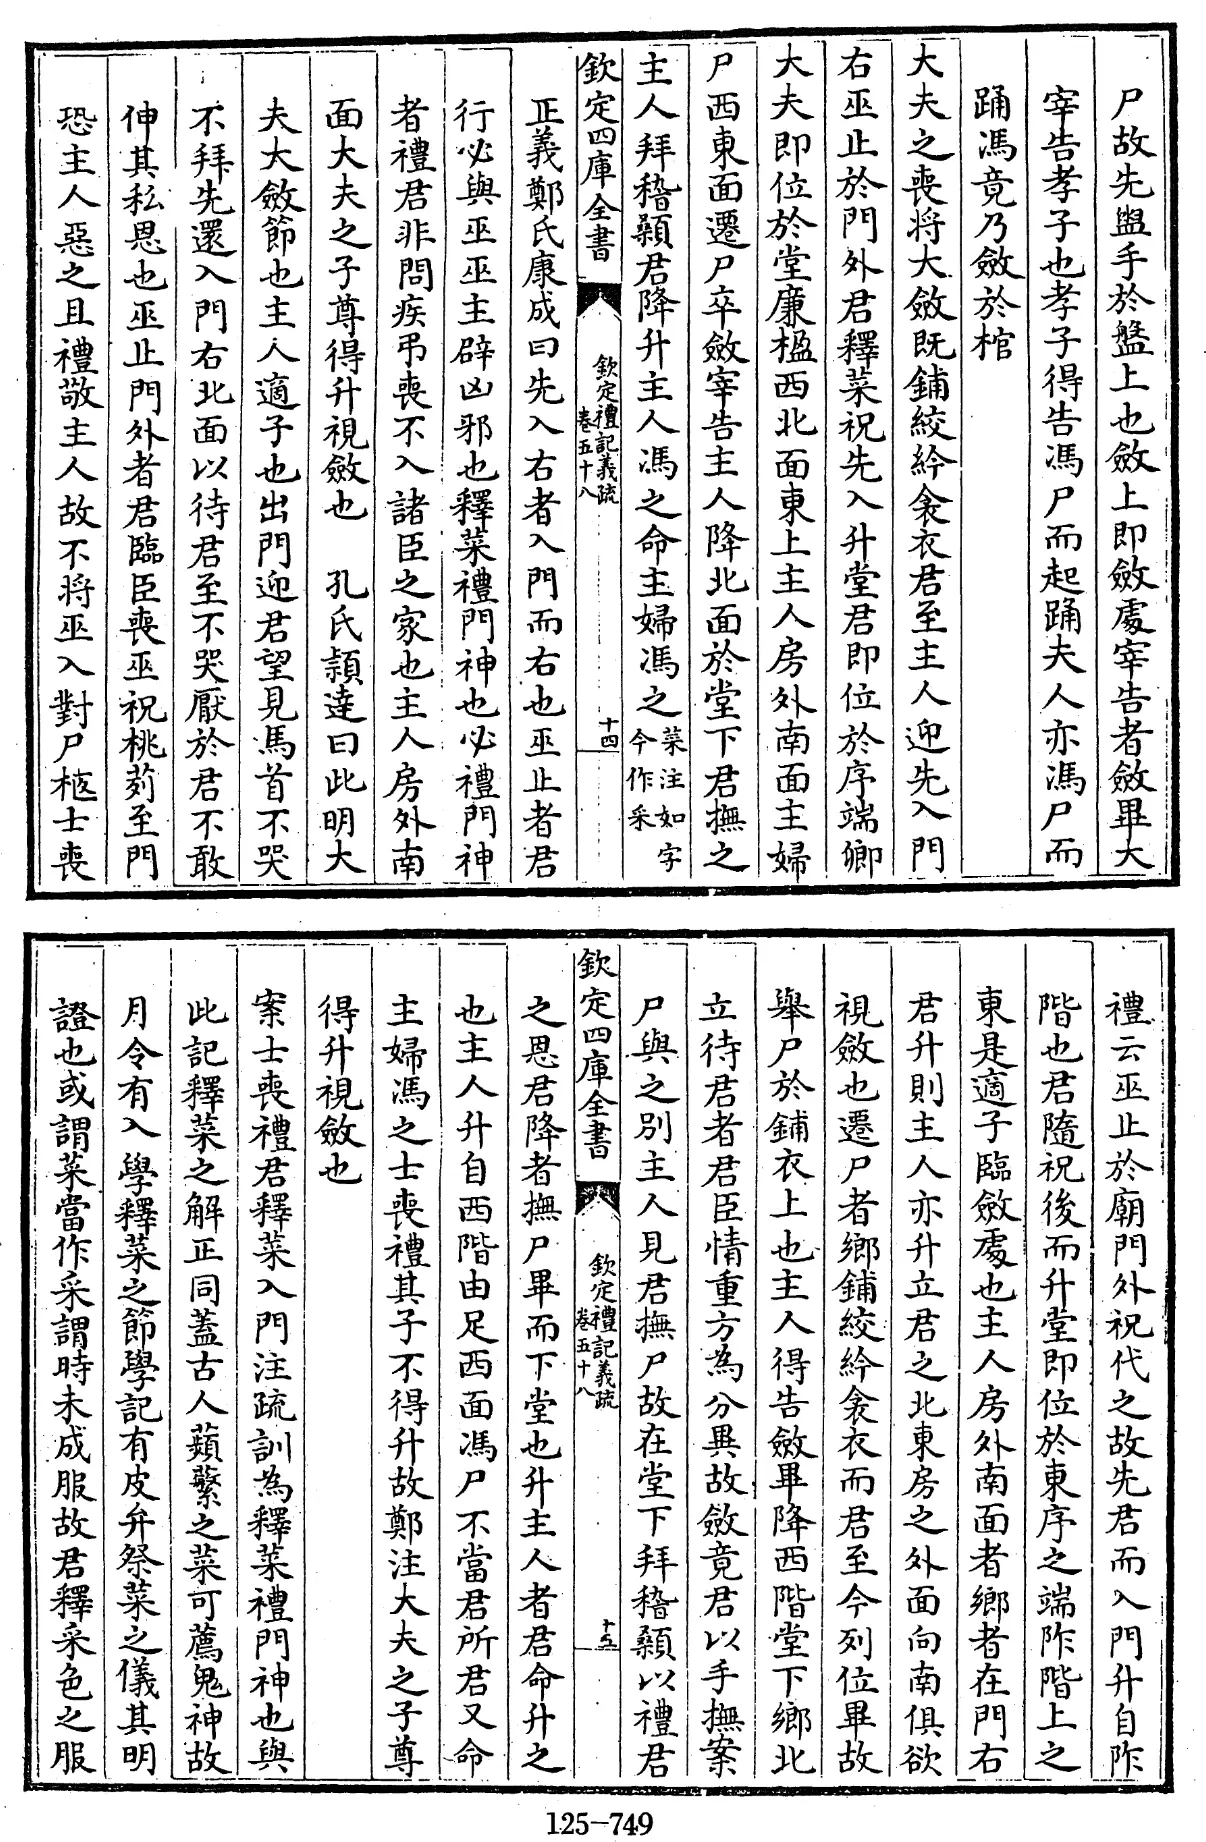 尸故先盥手於盤上也斂上即斂處宰告者斂畢大
宰告孝子也孝子得告馮尸而起踊夫人亦馮尸而
踊馮竟乃斂於棺
大夫之喪將大斂既鋪絞紟衾衣君至主人迎先入門
右巫止於門外君釋菜祝先入升堂君即位於序端卿
大夫即位於堂廉楹西北面東上主人房外南面主婦
尸西東面遷尸卒斂宰告主人降北面於堂下君撫之
主人拜稽顙君降升主人馮之命主婦馮之菜注如字
今作釆
欽定四庫全書
欽定禮記義疏
卷五十八
十四
正義鄭氏康成曰先入右者入門而右也巫止者君
行必與巫巫主辟凶邪也釋菜禮門神也必禮門神
者禮君非問疾弔喪不入諸臣之家也主人房外南
面大夫之子尊得升視斂也　孔氏穎達曰此明大
夫大斂節也主人適子也出門迎君望見馬首不哭
不拜先還入門右北面以待君至不哭厭於君不敢
伸其私恩也巫止門外者君臨臣喪巫祝桃茢至門
恐主人惡之且禮敬主人故不將巫入對尸柩士喪
禮云巫止於廟門外祝代之故先君而入門升自阼
階也君隨祝後而升堂即位於東序之端阼階上之
東是適子臨斂處也主人房外南面者鄉者在門右
君升則主人亦升立君之北東房之外面向南俱欲
視斂也遷尸者鄉鋪絞紟衾衣而君至今列位畢故
舉尸於鋪衣上也主人得告斂畢降西階堂下鄉北
立待君者君臣情重方為分異故斂竟君以手撫案
尸與之別主人見君撫尸故在堂下拜稽顙以禮君
欽定四庫全書
欽定禮記義疏
卷五十八
十五
之恩君降者撫尸畢而下堂也升主人者君命升之
也主人升自西階由足西面馮尸不當君所君又命
主婦馮之士喪禮其子不得升故鄭注大夫之子尊
得升視斂也
案士喪禮君釋菜入門注疏訓為釋菜禮門神也與
此記釋菜之解正同蓋古人蘋蘩之菜可薦鬼神故
月令有入學釋菜之節學記有皮弁祭菜之儀其明
證也或謂菜當作采謂時未成服故君釋采色之服
125-749